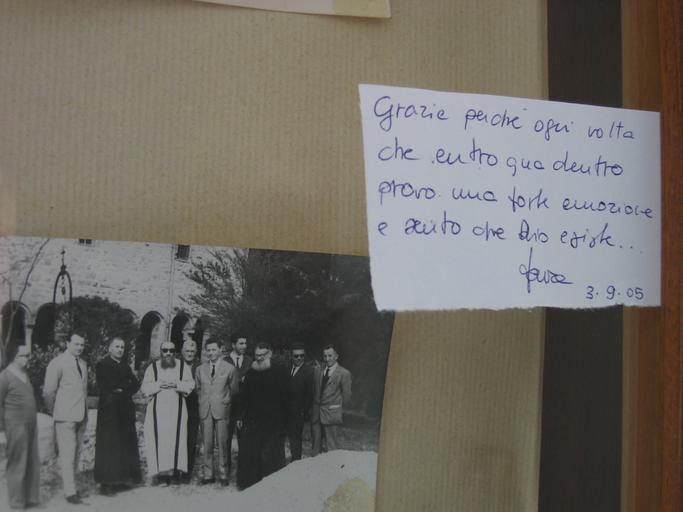 Grazie perché ogni volta
che entro qua dentro
provo una forte emozione
e sento che Dio esiste...
Laura
3.9.05